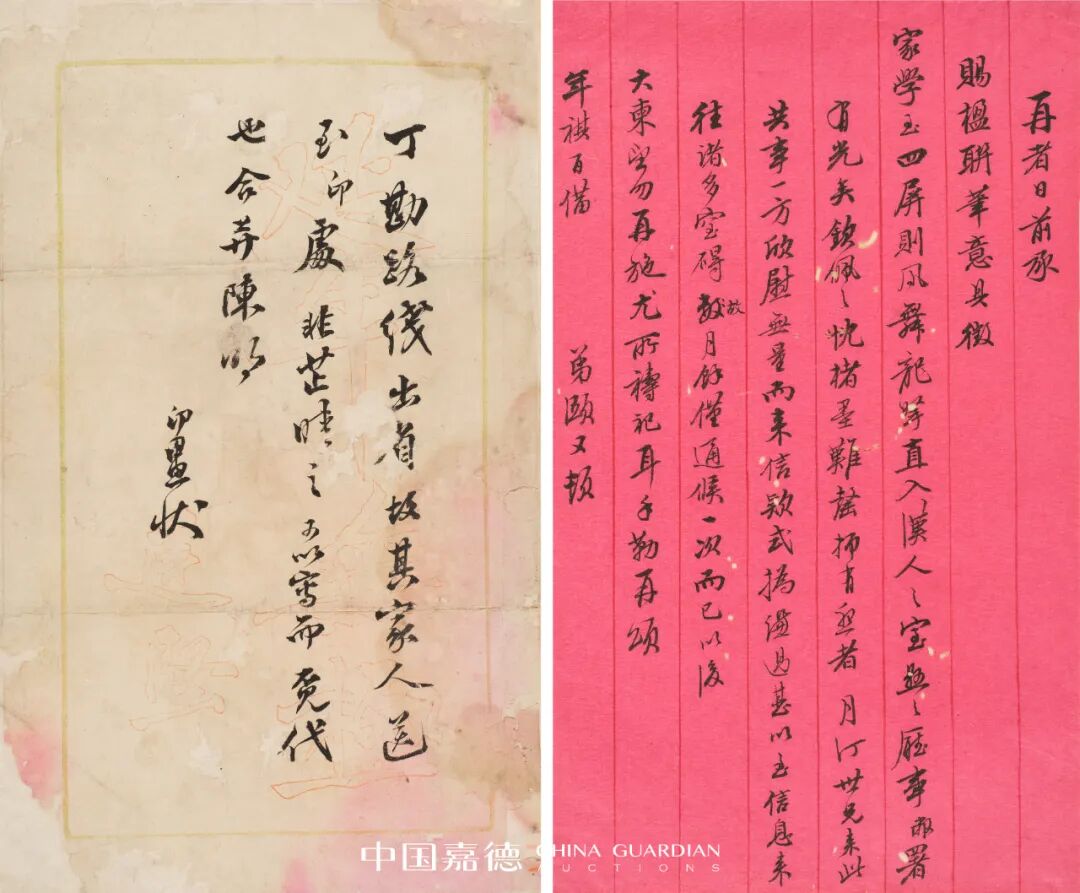 丁勘路线出省故其家人送
至印處非芷晴之可以寫而竟代
也合并陳明
印愚状
再者日前承
賜楹联筆意具徵
家學至四屏則凤舞龍蹲直入漢人之室懸之厅事敝署
有光矣欽佩之忱楮墨難罄抑有恳者月汀世兄来此
共事一方欣慰無量而来信欵式撝谦過甚以至信息来
往诸多窒碍故數月餘僅通候一次而已以後
大柬望勿再施尤所禱祀耳手勒再頌
年祺百備
弟頤又頓
中国嘉德 CHINA GUARDIAN
AUCTIONS